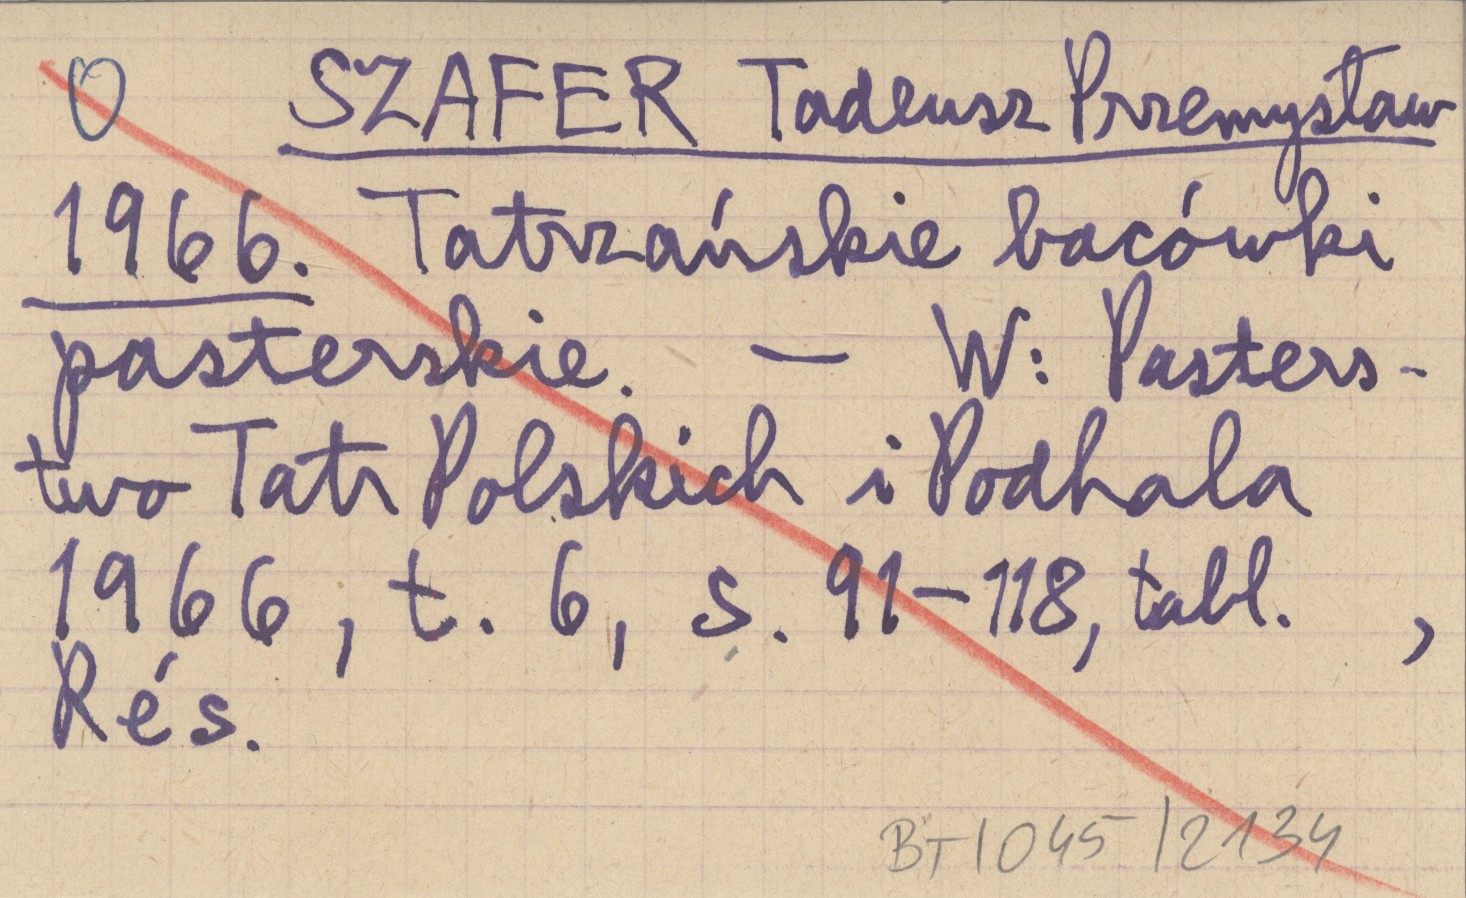 O SZAFER Tadeusz Przemysław
1966. Tatrzańskie bacówki
pasterskie. — W: Pasters-
two Tatr Polskich i Podhala
1966, t. 6, s. 91-118, tabl. ,
Rés.
BT 1045/2134